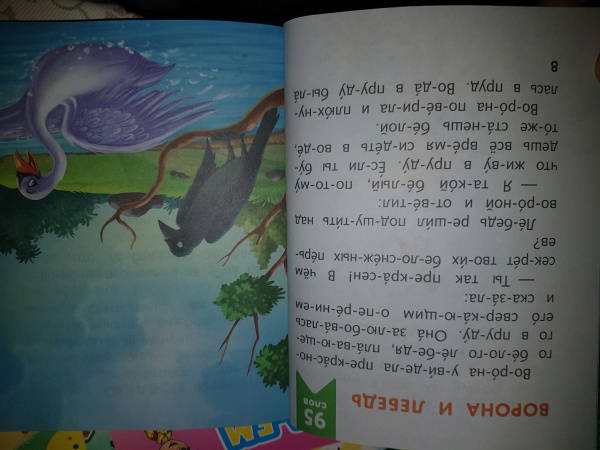 ВОРОНА И ЛЕБЕДЬ
95
слов
Во-ро́-на у-ви́-де-ла пре-кра́с-но-
го бе́-ло-го ле́-бе-дя, пла́-ва-ю-ще-
го в пру-ду́. Она́ за-лю-бо-ва́-лась
его́ свер-ка́-ю-щим о-пе-ре́-ни-ем
и ска-за́-ла:
— Ты так пре-кра́-сен! В чём
сек-ре́т тво-и́х бе-ло-сне́ж-ных пе́рь-
ев?
Ле́-бедь ре-ши́л под-шу-ти́ть над
во-ро́-ной и от-ве́-тил:
— Я та-ко́й бе́-лый, по-то-му́
что жи-ву́ в пру-ду́. Е́с-ли ты бу́-
дешь всё вре́-мя си-де́ть в во-де́,
то́-же ста́-нешь бе́-лой.
Во-ро́-на по-ве́-ри-ла и плю́х-ну-
лась в пруд. Во-да́ в пру-ду́ бы-ла́
8